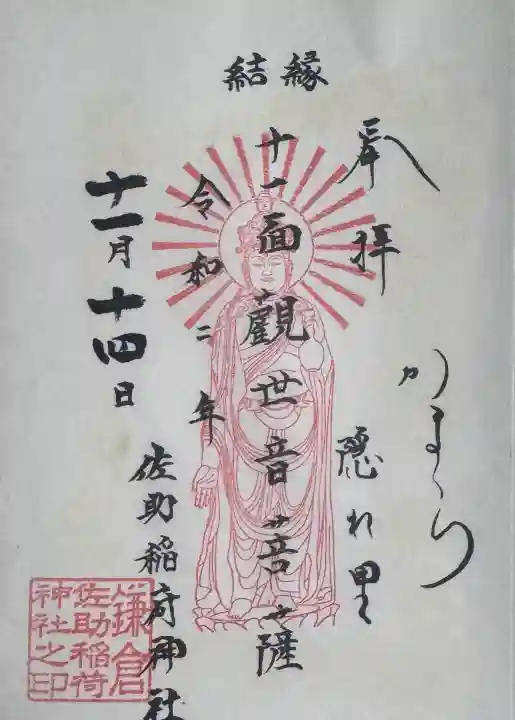 縁結
奉拝
かまくら
隠れ里
十一面觀世音菩薩
令和二年
十一月十四日
佐助稲荷神社
鎌倉
佐助稲荷
神社之印